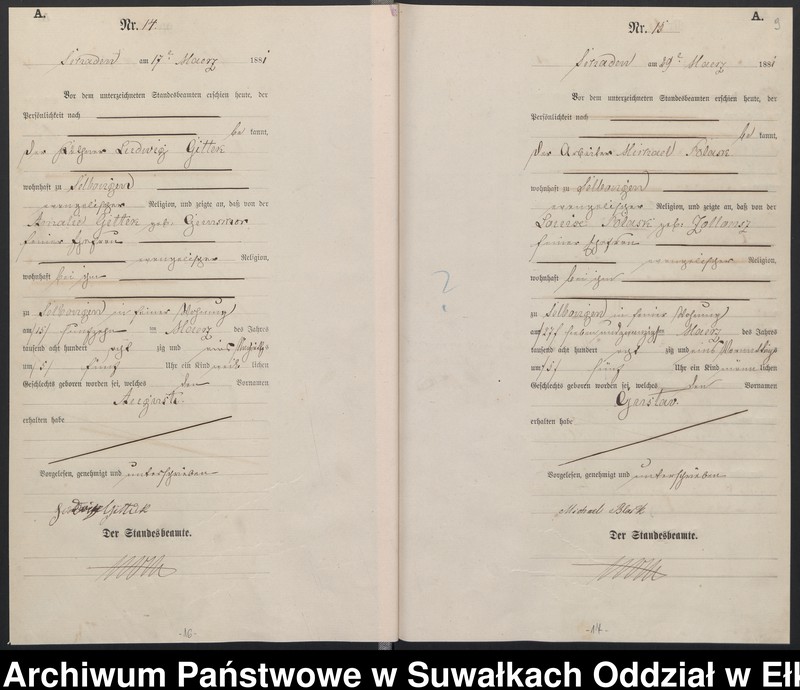 A.
Nr. 14.
am 17t Maerz 1881
Vor dem unterzeichneten Standesbeamten erschien heute, der
Persönlichkeit nach
be kannt,
der Ludwig Gittek
wohnhaft zu Selbongen
evangelischer Religion, und zeigte an, daß von der
Gittek geb.
seiner Ehefrau
evangelischer Religion,
wohnhaft bei ihm
zu Selbongen in seiner Wohnung
am 15/ fünfzehn ten Maerz des Jahres
tausend acht hundert acht zig und eins
um 5/ fünf Uhr ein Kind weib lichen
Geschlechts geboren worden sei, welches den Vornamen
erhalten habe
Vorgelesen, genehmigt und unterschrieben
Ludwig Gittek
Der Standesbeamte.
-16-
A.
9
Nr. 15
am 29t Maerz 1881
Vor dem unterzeichneten Standesbeamten erschien heute, der
Persönlichkeit nach
be kannt,
der Arbeiter Michael
wohnhaft zu Selbongen
evangelischer Religion, und zeigte an, daß von der
Louise geb.
seiner Ehefrau
evangelischer Religion,
wohnhaft bei ihm
zu Selbongen in seiner Wohnung
am 27/ sieben und zwanzig ten Maerz des Jahres
tausend acht hundert acht zig und eins Vormittags
um 5/ fünf Uhr ein Kind männ lichen
Geschlechts geboren worden sei, welches den Vornamen
Gustav.
erhalten habe
Vorgelesen, genehmigt und unterschrieben
Michael Blask
Der Standesbeamte.
-17-
?
Archiwum Państwowe w Suwałkach Oddział w Ełk